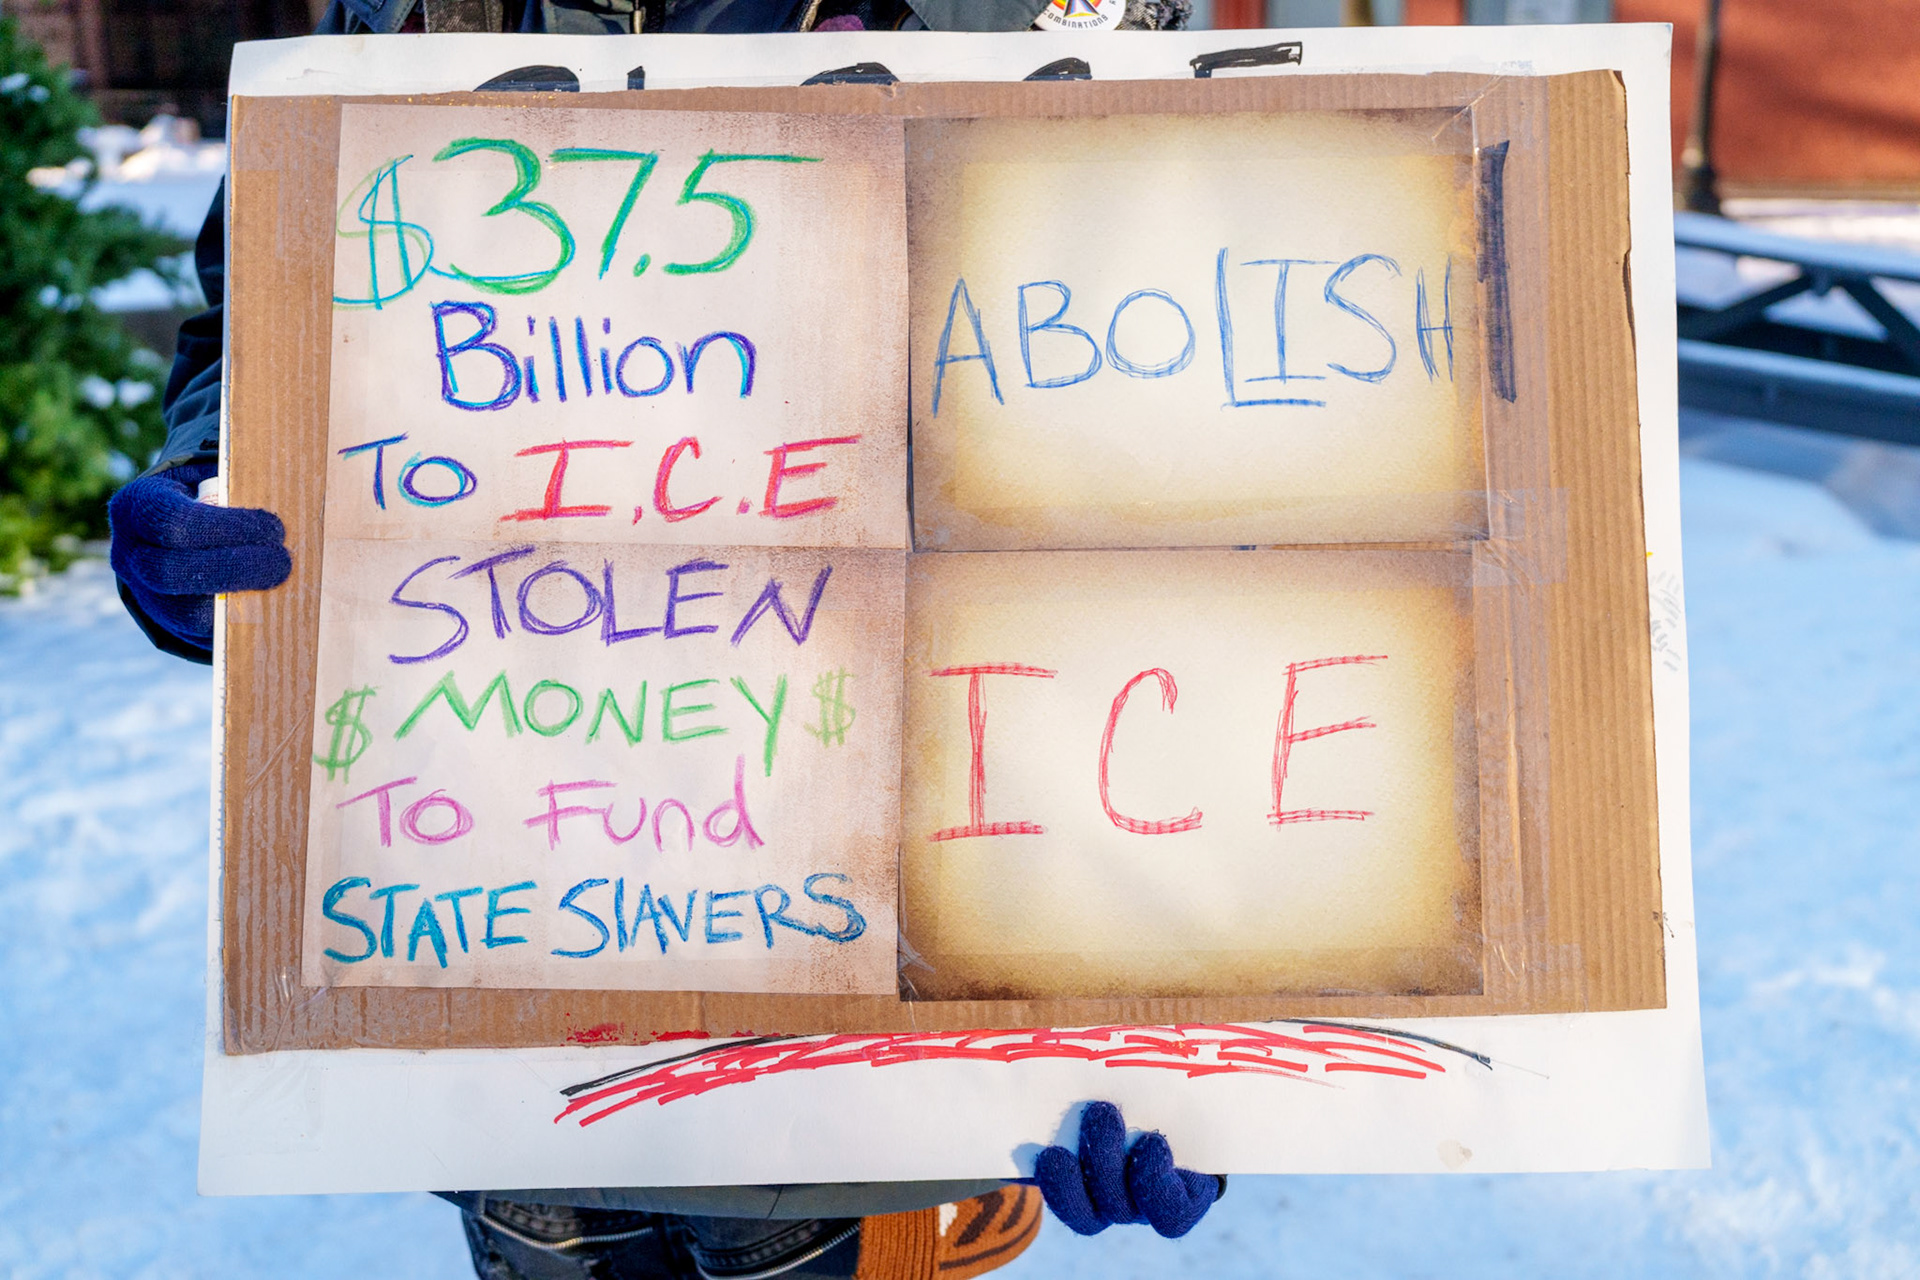 COMBINATIONS
$37.5
Billion
To I.C.E
STOLEN
$ MONEY $
To Fund
STATE SlAVERS
ABOLISH
ICE